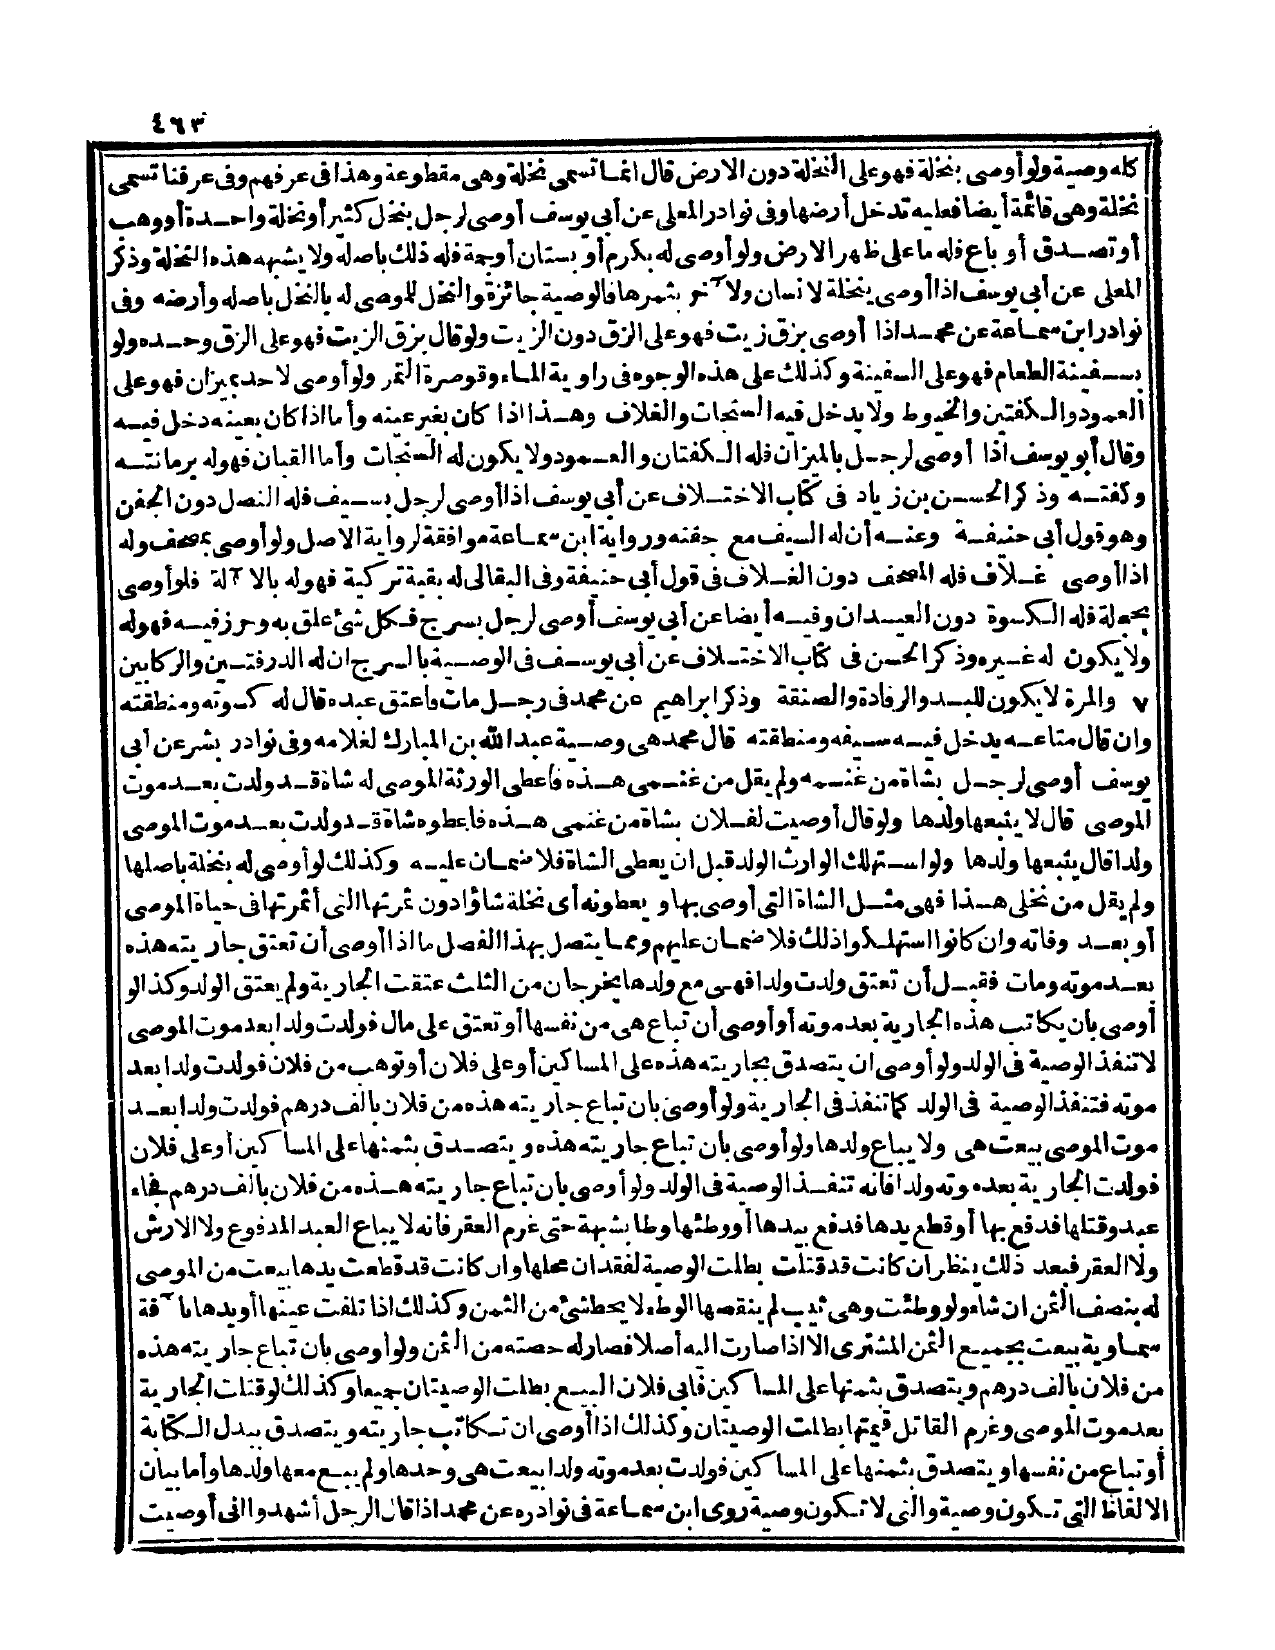 ٤٦٣
كله وصية ولو أوصى بنخلة فهو على النخلة دون الارض قال انما تسمى نخلة وهى مقطوعة وهذا فى عرفهم وفى عرفنا تسمى
نخلة وهى قائمة أيضا فعليه تدخل أرضها وفى نوادر المعلى عن أبى يوسف أوصى لرجل بنخل كثير أو نخلة واحدة أو وهب
أو تصدق أو باع فله ما على ظهر الارض ولو أوصى له بكرم أو بستان أو جة فله ذلك باصله ولا يشبه هذه النخلة وذكر
المعلى عن أبى يوسف اذا أوصى بنخلة لانسان ولا آخر بثمرها فالوصية جائزة والنخل للموصى له بالنخل باصله وأرضه وفى
نوادر ابن سماعة عن محمد اذا أوصى بزق زيت فهو على الزق دون الزيت ولو قال بزق الزيت فهو على الزق وحده ولو
بسفينة الطعام فهو على السفينة وكذلك على هذه الوجوه فى راوية الماء وقوصرة التمر ولو أوصى لاحد بميزان فهو على
العمود والكفتين والخيوط ولا يدخل فيه الصنجات والغلاف وهذا اذا كان بغير عينه وأما اذا كان بعينه دخل فيه
وقال أبو يوسف اذا أوصى لرجل بالميزان فله الكفتان والعمود ولا يكون له الصنجات وأما القبان فهو له برمانته
وكفته وذكر الحسن بن زياد فى كتاب الاختلاف عن أبى يوسف اذا أوصى لرجل بسيف فله النصل دون الجفن
وهو قول أبى حنيفة وعنه أن له السيف مع جفنه ورواية ابن سماعة موافقة لرواية الاصل ولو أوصى بمصحف وله
اذا أوصى غلاف فله المصحف دون الغلاف فى قول أبى حنيفة وفى البقالى له بقية تركية فهو له بالا آلة فلو أوصى
بحجلة فله الكسوة دون العيدان وفيه أيضا عن أبى يوسف أوصى لرجل بسرج فكل شئ علق به وحرز فيه فهو له
ولا يكون له غيره وذكر الحسن فى كتاب الاختلاف عن أبى يوسف فى الوصية بالسرج ان له الدرفتين والركابين
٧ والمرة لا يكون للبد والرفادة والصنقة وذكر ابراهيم عن محمد فى رجل مات فاعتق عبده قال له كسوته ومنطقته
وان قال متاعه يدخل فيه سيفه ومنطقته قال محمد هى وصية عبد الله بن المبارك لغلامه وفى نوادر بشر عن أبى
يوسف أوصى لرجل بشاة من غنمه ولم يقل من غنمى هذه فاعطى الورثة الموصى له شاة قد ولدت بعد موت
الموصى قال لا يتبعها ولدها ولو قال أوصيت لفلان بشاة من غنمى هذه فاعطوه شاة قد ولدت بعد موت الموصى
ولدا قال يتبعها ولدها ولو استهلك الوارث الولد قبل ان يعطى الشاة فلا ضمان عليه وكذلك لو أوصى له بنخلة باصلها
ولم يقل من نخلى هذا فهى مثل الشاة التى أوصى بها ويعطونه أى نخلة شاؤا دون ثمرتها التى أثمرتها فى حياة الموصى
أو بعد وفاته وان كانوا استهلكوا ذلك فلا ضمان عليهم ومما يتصل بهذا الفصل ما اذا أوصى أن تعتق جاريته هذه
بعد موته ومات فقبل أن تعتق ولدت ولدا فهى مع ولدها يخرجان من الثلث عتقت الجارية ولم يعتق الولد وكذا لو
أوصى بان يكاتب هذه الجارية بعد موته أو أوصى أن تباع هى من نفسها أو تعتق على مال فولدت ولدا بعد موت الموصى
لا تنفذ الوصية فى الولد ولو أوصى ان يتصدق بجاريته هذه على المساكين أو على فلان أو توهب من فلان فولدت ولدا بعد
موته فتنفذ الوصية فى الولد كما تنفذ فى الجارية ولو أوصى بان تباع جاريته هذه من فلان بالف درهم فولدت ولدا بعد
موت الموصى بيعت هى ولا يباع ولدها ولو أوصى بان تباع جاريته هذه ويتصدق بثمنها على المساكين أو على فلان
فولدت الجارية بعد موته ولدا فانه تنفذ الوصية فى الولد ولو أوصى بان تباع جاريته هذه من فلان بالف درهم فجاء
عبد وقتلها فدفع بها أو قطع يدها فدفع بيدها أو وطئها وطأ بشبهة حتى غرم العقر فانه لا يباع العبد المدفوع ولا الارش
ولا العقر فبعد ذلك ينظر ان كانت قد قتلت بطلت الوصية لفقدان محلها وان كانت قد قطعت يدها بيعت من الموصى
له بنصف الثمن ان شاء ولو وطئت وهى ثيب لم ينقصها الوطء لا يحط شئ من الثمن وكذلك اذا تلفت عينها أو يدها با آفة
سماوية بيعت بجميع الثمن المشترى الا اذا صارت اليه أصلا فصار له حصته من الثمن ولو أوصى بان تباع جاريته هذه
من فلان بالف درهم ويتصدق بثمنها على المساكين فابى فلان البيع بطلت الوصيتان جميعا وكذلك لو قتلت الجارية
بعد موت الموصى وغرم القاتل قيمتها بطلت الوصيتان وكذلك اذا أوصى ان تكاتب جاريته ويتصدق ببدل الكتابة
أو تباع من نفسها ويتصدق بثمنها على المساكين فولدت بعد موته ولدا بيعت هى وحدها ولم يبع معها ولدها وأما بيان
الالفاظ التى تكون وصية والتى لا تكون وصية روى ابن سماعة فى نوادره عن محمد اذا قال الرجل أشهدوا انى أوصيت